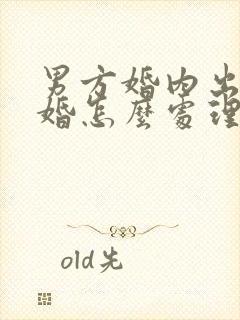 男方婚内出
婚怎麽處理
old先